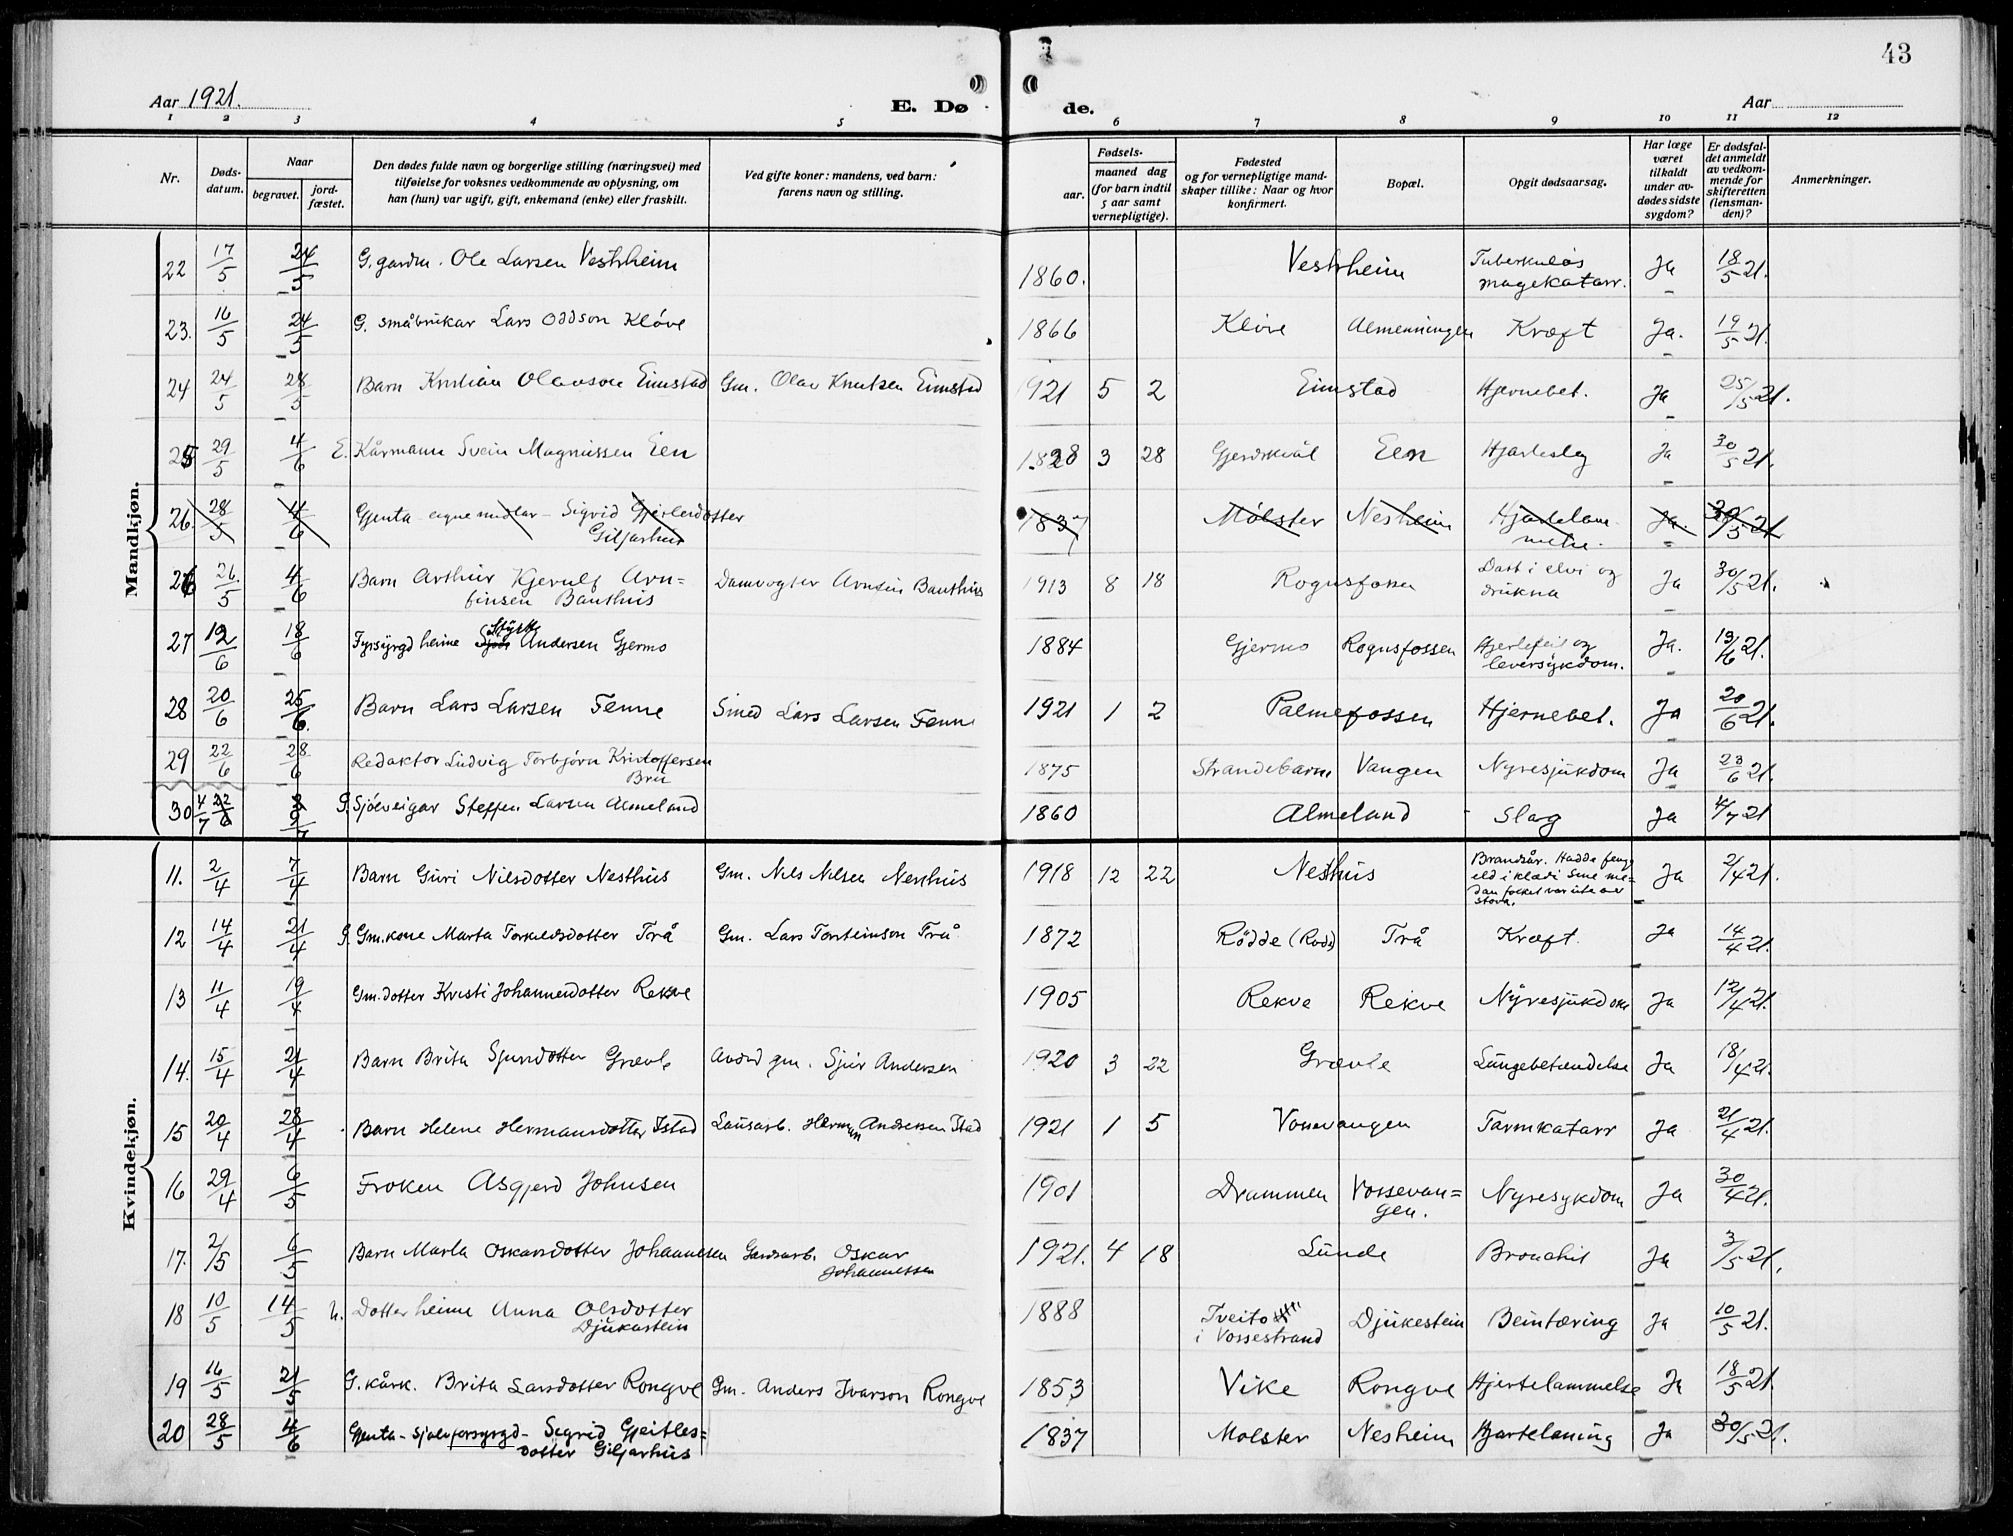 43
Aar 1921.
E. Døde.
Aar
1 2 3 4 5 6 7 8 9 10 11 12
Nr.
Døds-datum.
Naar
begravet.
jord-fæstet.
Den dødes fulde navn og borgerlige stilling (næringsvei) med
tilføielse for voksnes vedkommende av oplysning, om
han (hun) var ugift, gift, enkemand (enke) eller fraskilt.
Ved gifte koner: mandens, ved barn:
farens navn og stilling.
Fødsels-
aar.
maaned dag
(for barn indtil
5 aar samt
vernepligtige).
Fødested
og for vernepligtige mand-
skaper tillike: Naar og hvor
konfirmert.
Bopæl.
Opgit dødsaarsag.
Har læge
været
tilkaldt
under av-
dødes sidste
sygdom?
Er dødsfal-
det anmeldt
av vedkom-
mende for
skifteretten
(lensman-
den)?
Anmerkninger.
Mandkjøn.
22 17/5 24/5 G. gardm. Ole Larsen Vestrheim 1860. Vestrheim Tuberkuløs magekatarr. Ja 18/5 21.
23. 16/5 24/5 G. småbrukar Lars Oddson Kløve 1866 Kløve Almenningen Kræft Ja. 19/5 21.
24 24/5 28/5 Barn Kristian Olavson Eimstad Gm. Olav Knutsen Eimstad 1921 5 2 Eimstad Hjernebet. Ja 25/5 21.
25 29/5 4/6 E. Kårmann Svein Magnussen Een 1828 3 28 Gjerdskvål Een Hjarteslag Ja 30/5 21.
26. 28/5 4/6 Gjenta - eigne midlar - Sigrid Gjeirlesdotter Giljarhus 1837 Mølster Nesheim Hjartelam- Ja. 30/5 21
26 26/5 4/6 Barn Arthur Kjerulf Arn=finsen Bauthus Damvogter Arnfin Bauthus 1913 8 18 Rognsfossen Datt i elvi og drukna Ja 30/5 21.
27 12/6 18/6 Fyrsyrgd heime Styrk Andersen Gjermo 1884 Gjermo Rognsfossen Hjertefeil og leversykdom. Ja. 13/6 21.
28 20/6 25/6. Barn Lars Larsen Fenne Smed Lars Larsen Fenne 1921 1 2 Palmefossen Hjernebet. Ja 20/6 21.
29 22/6 28/6 Redaktør Ludvig Torbjørn Kristoffersen Bru 1875 Strandebarm Vangen Nyresjukdom Ja 23/6 21.
30 4/7 9/7 G. Sjølveigar Steffen Larsen Almeland 1860 Almeland Slag Ja 4/7 21
Kvindekjøn.
11. 2/4 7/4 Barn Guri Nilsdotter Nesthus Gm. Nils Nilsen Nesthus 1918 12 22 Nesthus Brandsår. Hadde fenge eld i klædi sine me=dan folket var ute av stova. Ja 2/4 21.
12 14/4 21/4 G. Gm. kone Marta Torkelsdotter Trå Gm. Lars Torsteinson Trå 1872 Rødde (Rodd) Trå Kræft. Ja 14/4 21.
13 11/4 19/4 Gm. dotter Kristi Johannesdotter Rekve 1905 Rekve Rekve Nyresjukdom Ja 12/4 21.
14. 15/4 21/4 Barn Brita Sjursdotter Grævle Avdød gm. Sjur Andersen 1920 3 22 Grævle Lungebetændelse Ja 18/4 21.
15 20/4 28/4 Barn Helene Hermansdotter Istad Lausarb. Herman Andersen Istad 1921 1 5 Vossevangen Tarmkatarr Ja 21/4 21.
16 29/4 6/5 Frøken Asgjerd Johnsen 1901 Drammen Vossevan=gen. Nyresykdom Ja 30/4 21.
17. 2/5 6/5 Barn Marta Oskarsdotter Johannesen Gardsarb. Oskar Johannessen 1921. 4 18 Lunde Bronchit Ja 3/5 21.
18 10/5 14/5 U. Dotter heime Anna Olsdotter Djukastein 1888 Tveito i Vossestrand Djukestein Beintæring Ja 10/5 21.
19 16/5 21/5 G. kårk. Brita Larsdotter Rongve Gm. Anders Ivarson Rongve 1853 Vike Rongve Hjertelammelse Ja 18/5 21.
20 28/5 4/6 Gjenta - sjølvforsyrgd - Sigrid Gjeitles=dotter Giljarhus 1837 Mølster Nesheim Hjartelaming Ja 30/5 21.